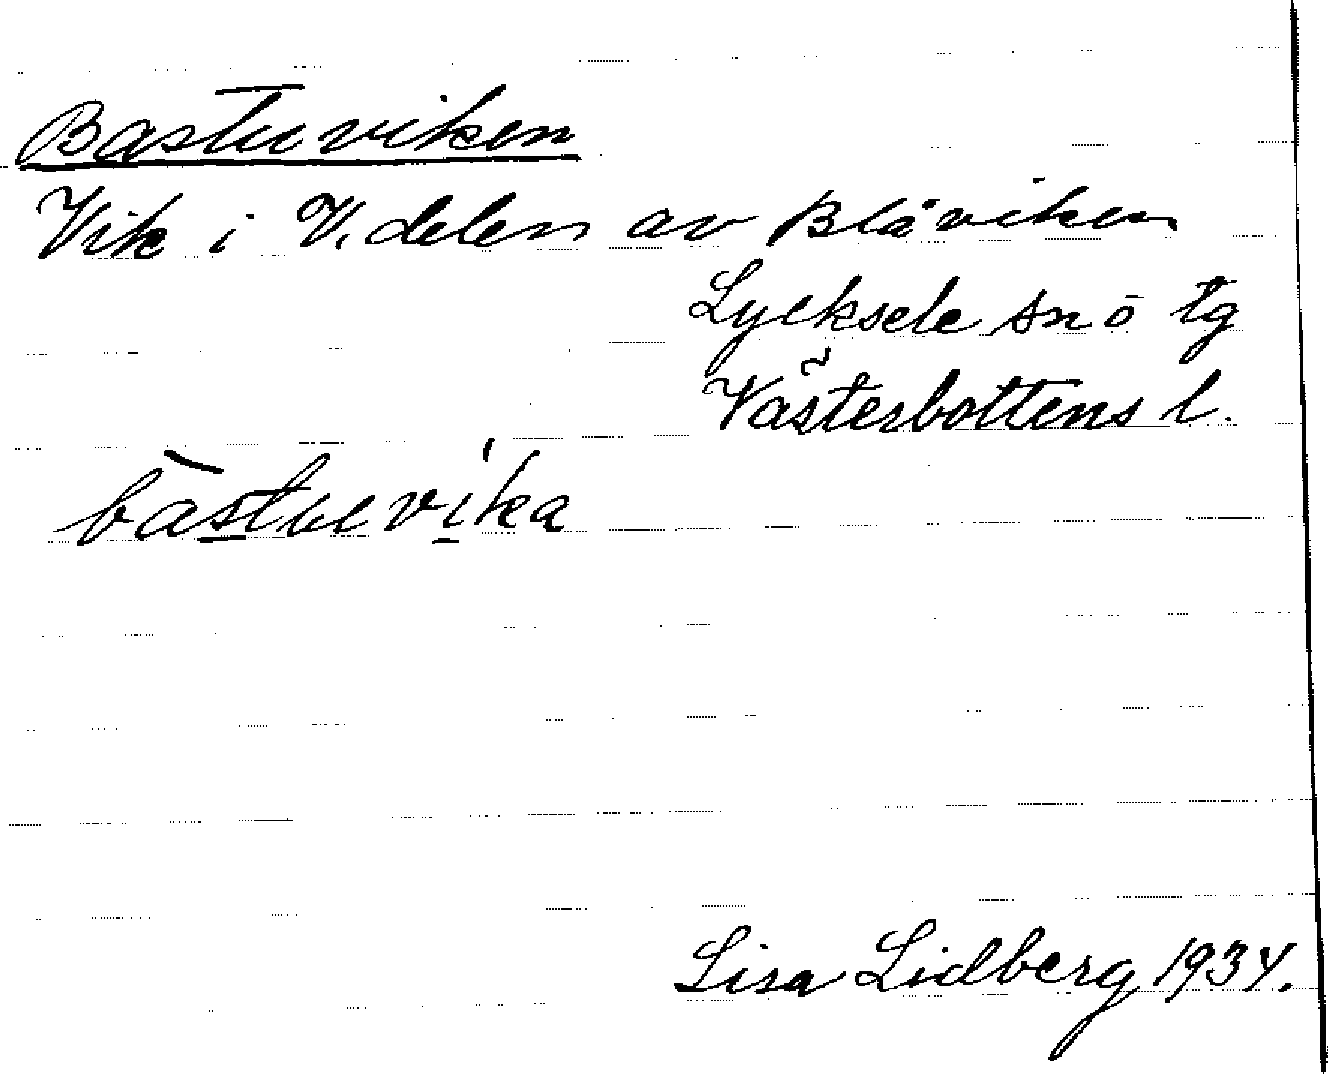 Bastuviken
Vik i V. delen av Blåviken
Lycksele sn o tg
Västerbottens l.
bàstuvika
Lisa Lidberg 1934.